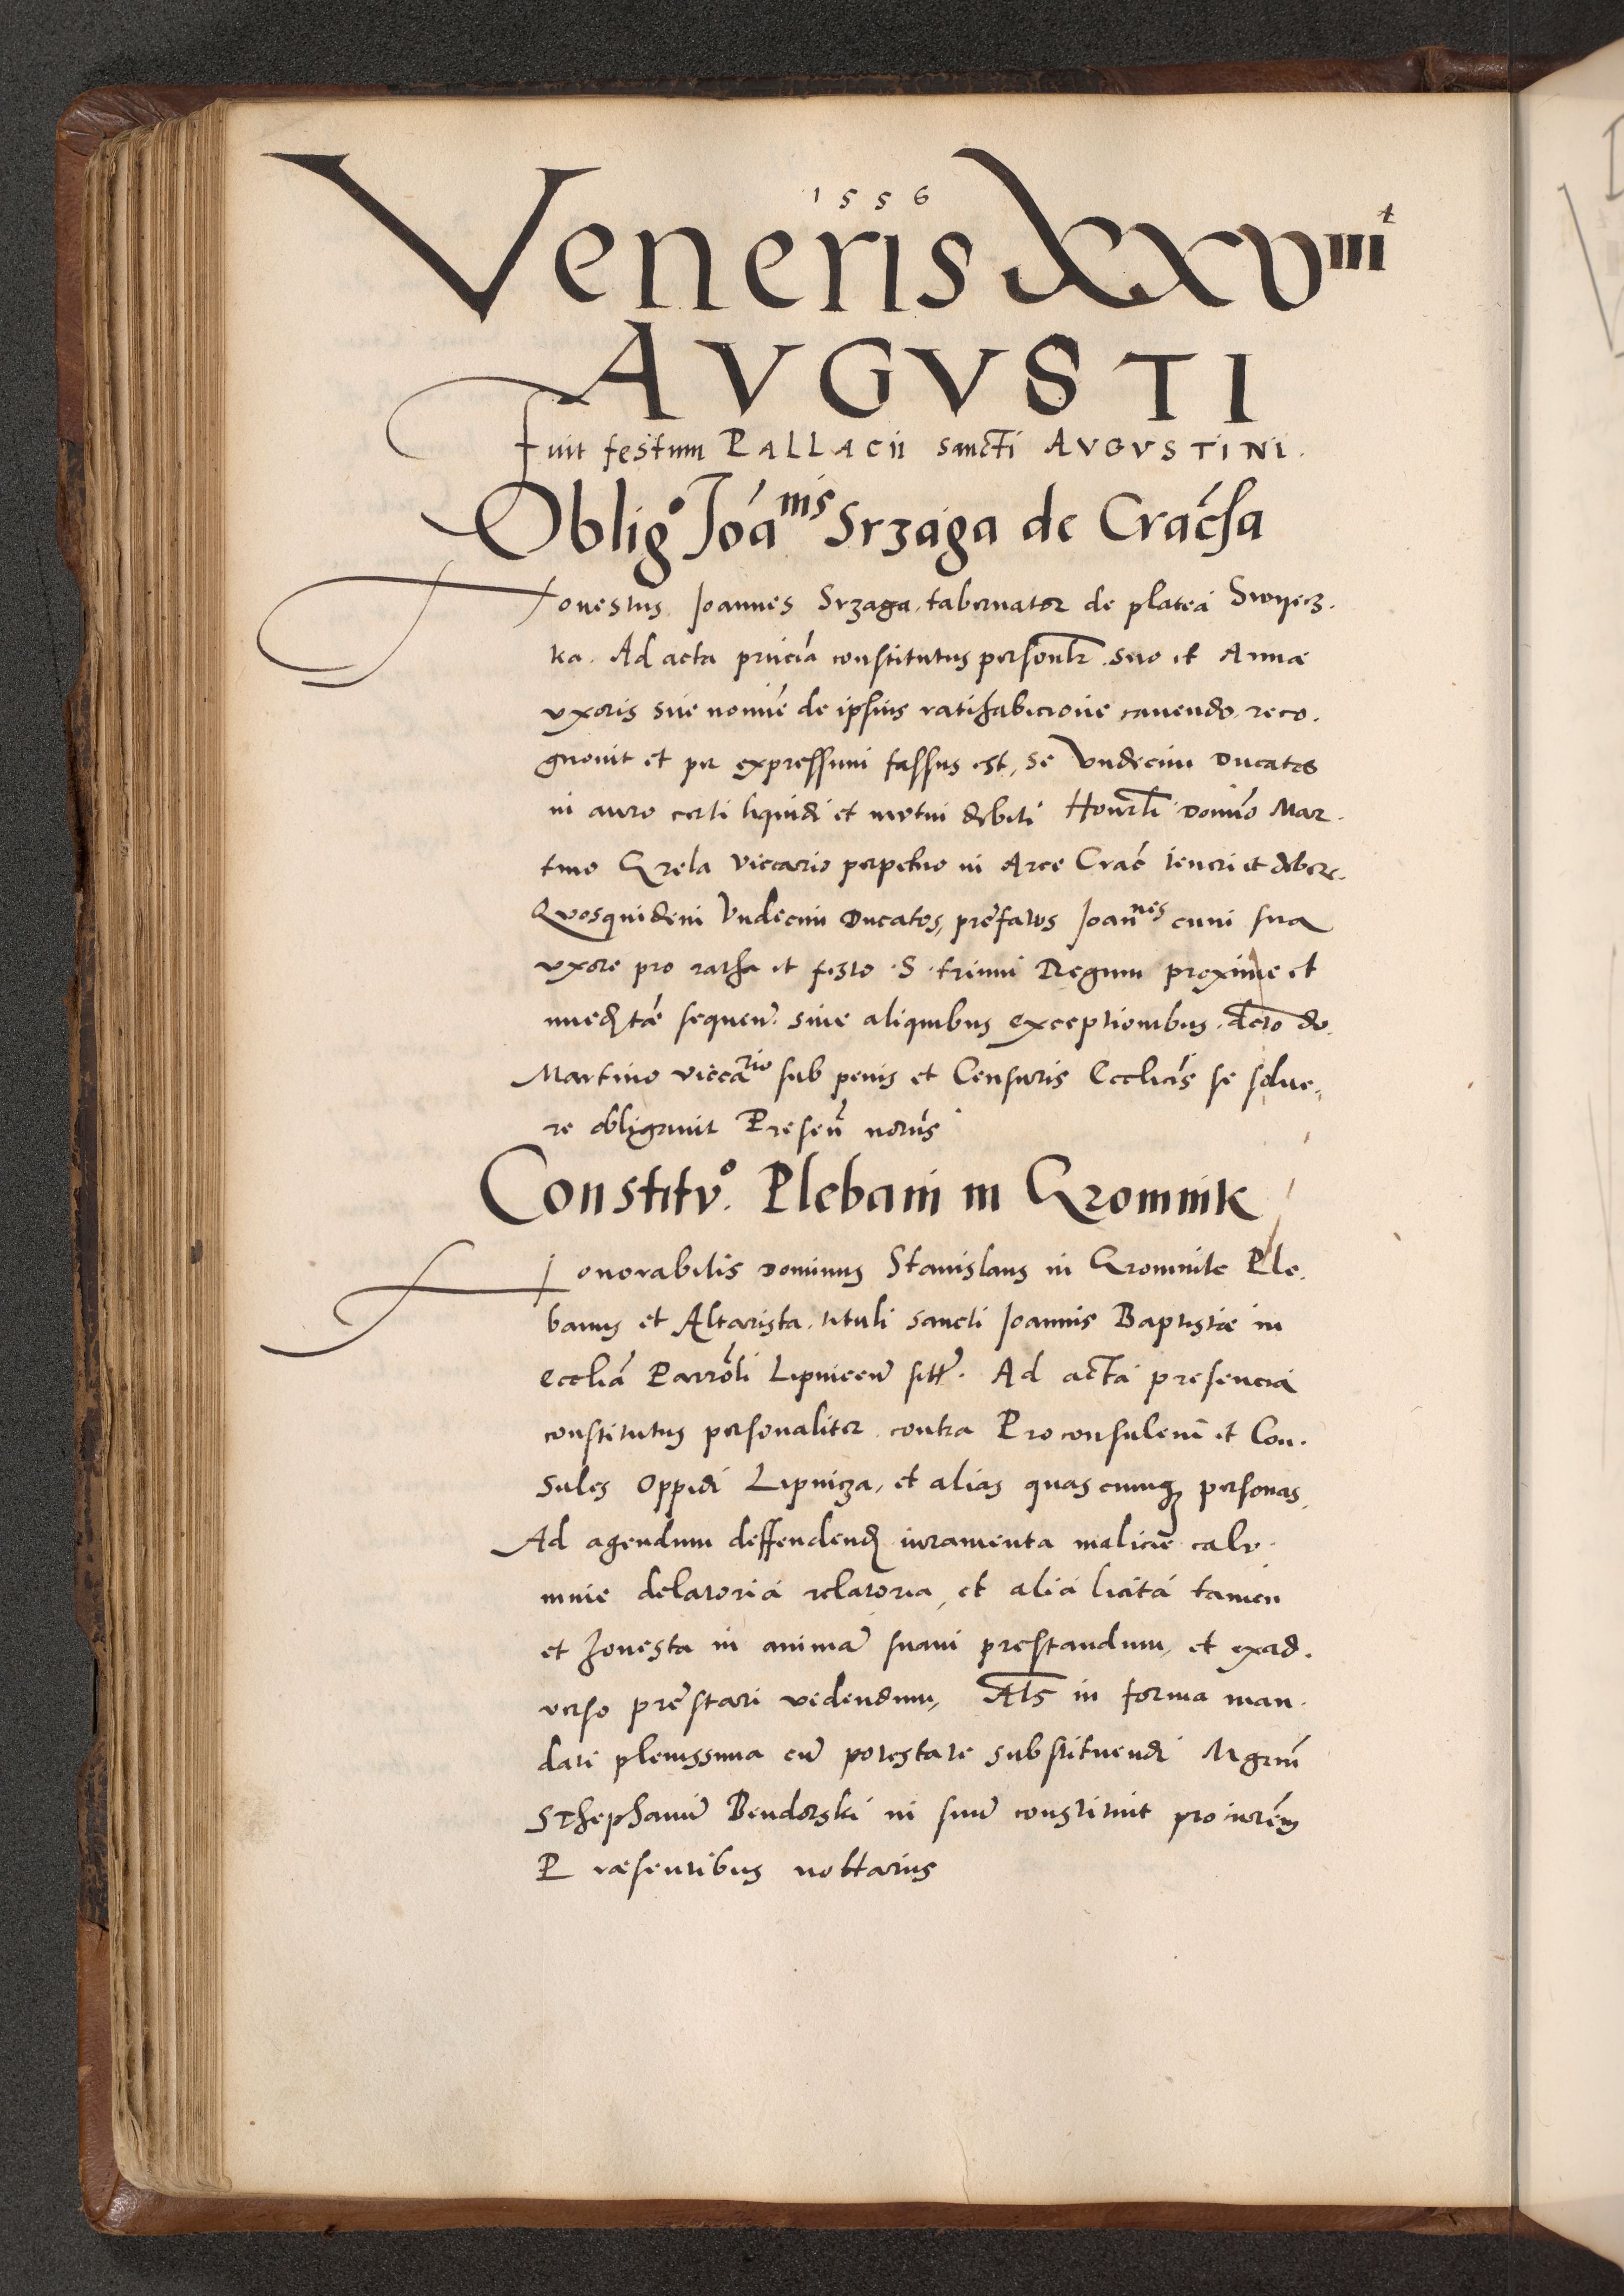 1556
Veneris XXVIII
AVGVSTI
Fuit festum PALLACII sancti AVGVSTINI.
Oblig° Joannis Srzaga de Crac̃ha
Honestus Joannes Srzaga, tabernator de platea Swyecz.
ka. Ad acta pñcia constitutus personlr̃ suo et Annæ
vxoris sue nomiẽ de ipsius ratihabicione cauendo reco.
gnouit et per expressum fassus est, se Vndecim Ducatos
in auro certi liquidi et debiti Honrli Domino Mar.
tino Grela Viccario perpetuo in Arce Crac̃ teneri et debere.
Quosquidem Vndecim Ducatos, prefatus Joannes cum sua
vxore pro ratha et festo S. trium Regum proxime et
sequeñ. sine aliquibus exceptionibus. dcto do.
Martino viccario sub penis et Censuris Ecclicis se solue,,
re obligauit Preseñ notus
Constitu°. Plebani in Gromnik
Honorabilis Dominus Stanislaus in Gromnik Ple.
banus et Altarista tituli sancti Joannis Baptistæ in
ecclia Parroli Lipniceñ sitt. Ad acta presencia
constitutus personaliter contra Proconsulem et Con.
sules oppidi Lipnicza, et alias quascumqʒ personas,
Ad agendum deffendend iuramenta malicie calu.
mnie delatoria relatoria, et alia licita tamen
et honesta in anima suam prestandum, et exad.
verso prestari videndum, Als in forma man.
dati plenissima cũ potestate substituendi Mgrm̃
Sthephanũ Bendorski in suũ constituit
Præsentibus nottarius